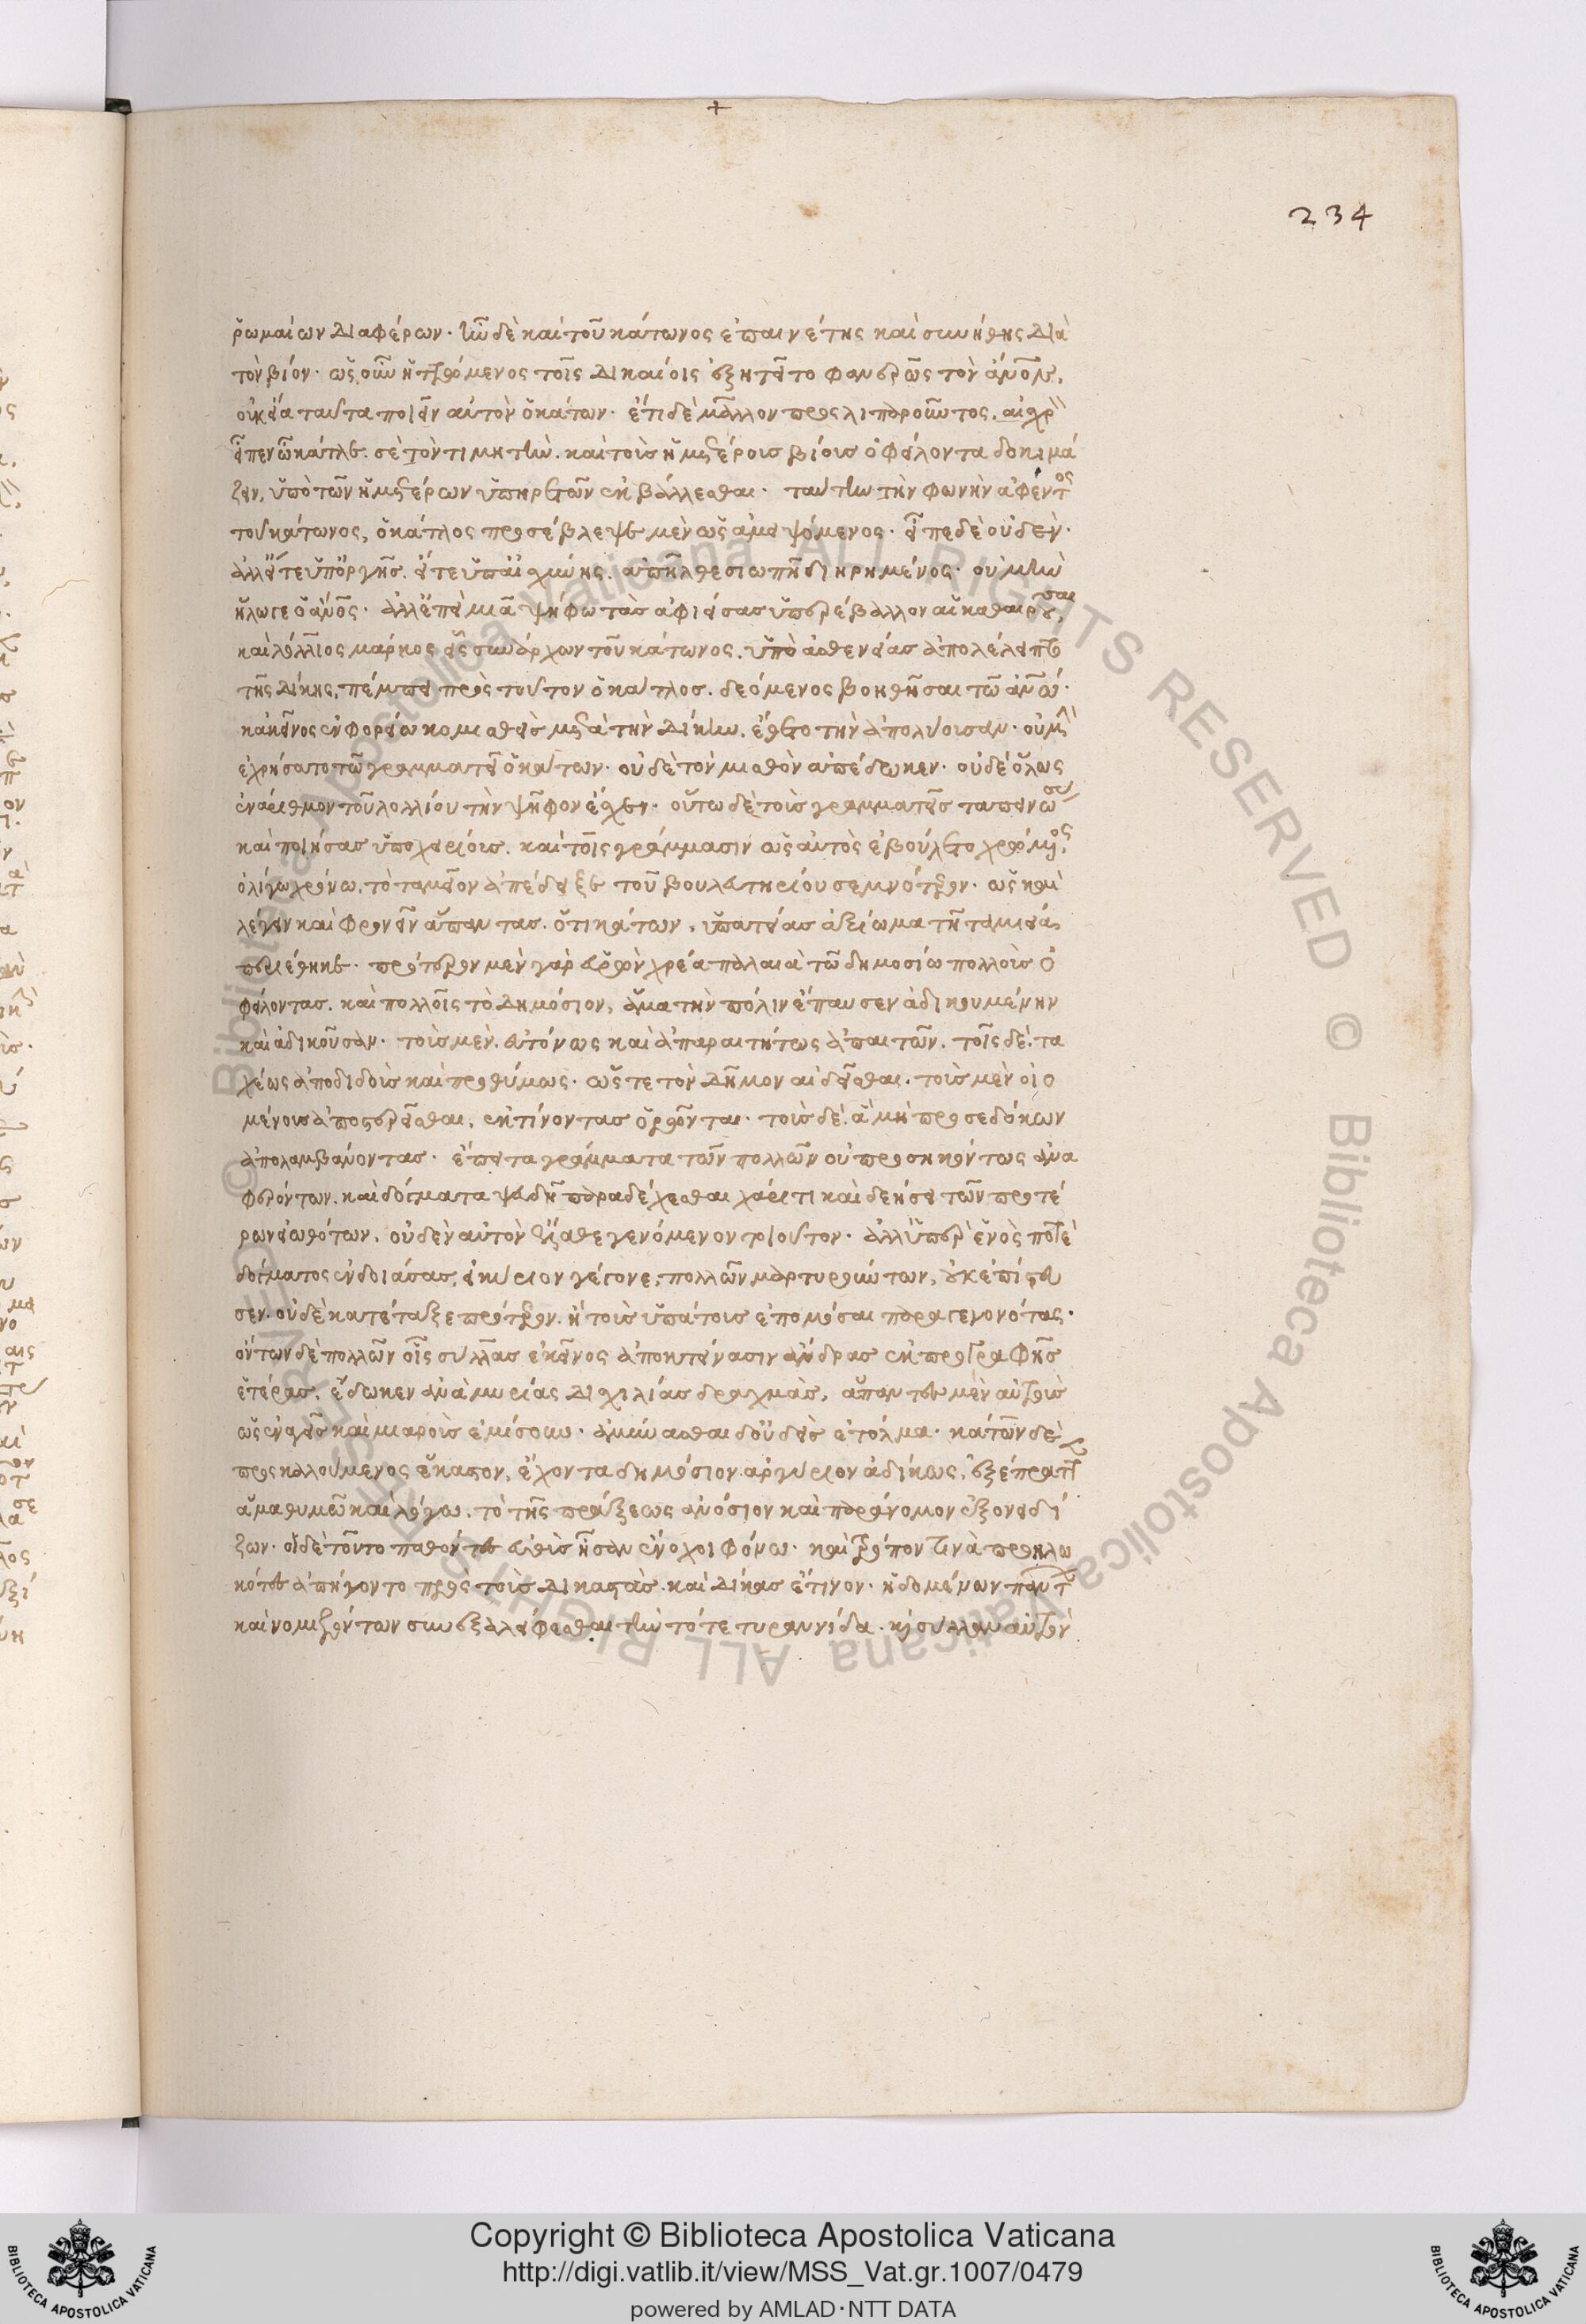 +
234
ῥωμαίων διαφέρων· ἦν δὲ καὶ τοῦ κάτωνος ἐπαινέτης καὶ συνήθης διὰ
τὸν βίον· ὡς οὖν ἡττώμενος τοῖς δικαίοις ἐξητεῖτο φανερῶς τὸν ἄνον,
οὐκ εἴα ταῦτα ποιεῖν αὐτὸν ὁ κάτων· ἔτι δὲ μᾶλλον προσλιπαροῦντος. αἰχρὸν
εἶπεν ὦ κάτλε. σὲ τὸν τιμητὴν. καὶ τοὺς ἡμετέρους βίους ὀφείλοντα δοκιμά
ζειν, ὑπὸ τῶν ἡμετέρων ὑπηρετῶν ἐκβάλλεσθαι· ταύτην τὴν φωνὴν ἀφέντος
τοῦ κάτωνος, ὁ κάτλος προσέβλεψε μὲν ὡς ἀμειψόμενος· εἶπε δὲ οὐδέν·
ἀλλ' εἴτε ὑπ' ὀργῆς. εἴτε ὑπ' αἰχύνης. ἀπῆλθε σιωπῇ διηρημένος· οὐ μὴν
ἥλωγε ὁ ἄνος· ἀλλ' ἐπεὶ μιᾷ ψήφω τὰς ἀφιείσας ὑπερέβαλλον αἱ καθαιροῦσαι,
καὶ λόλλιος μάρκος εἷς συνάρχων τοῦ κάτωνος. ὑπὸ ἀσθενείας ἀπολέλειπτο
τῆς δίκης, πέμπει πρὸς τοῦτον ὁ κάτλος. δεόμενος βοηθῆσαι τῶ ἀνω·
κἀκεῖνος ἐν φορείω κομισθεὶς μετὰ τὴν δίκην. ἔθετο τὴν ἀπολύουσαν· οὐ μὴν
ἐχρήσατο τῶ γραμματεῖ ὁ κάτων· οὐδὲ τὸν μισθὸν ἀπέδωκεν· οὐδὲ ὅλως
ἐνάριθμον τοῦ λολλίου τὴν ψῆφον ἔσχεν· οὕτω δὲ τοὺς γραμματεῖς ταπεινώσας
καὶ ποιήσας ὑποχειρίους. καὶ τοῖς γράμμασιν ὡς αὐτὸς ἐβούλετο χρώμενος,
ὀλίγω χρόνω. τὸ ταμεῖον ἀπέδειξε τοῦ βουλευτηρίου σεμνότερον· ὡς καὶ
λέγειν καὶ φρονεῖν ἅπαντας. ὅτι κάτων, ὑπατείας ἀξίωμα τῇ ταμιεία
περιέθηκε· πρότερον μὲν γὰρ εὑρὼν χρέα παλαιὰ τῶ δημοσίω πολλοὺς ὀ
φείλοντας. καὶ πολλοῖς τὸ δημόσιον, ἅμα τὴν πόλιν ἔπαυσεν ἀδικουμένην
καὶ ἀδικοῦσαν· τοὺς μὲν. εὐτόνως καὶ ἀπαραιτήτως ἀπαιτῶν. τοῖς δὲ. τα
χέως ἀποδιδοὺς καὶ προθύμως· ὥστε τὸν δῆμον αἰδεῖσθαι. τοὺς μὲν οἰο
μένους ἀποστερεῖσθαι, ἐκτίνοντας ὁρῶνται· τοὺς δέ. ἃ μὴ προσεδόκων
ἀπολαμβάνοντας· ἔπειτα γράμματα τῶν πολλῶν οὐ προσηκόντως ἀνα
φερόντων. καὶ δόγματα ψευδῆ παραδέχεσθαι χάριτι καὶ δεήσει τῶν προτέ
ρων εἰωθότων. οὐδὲν αὐτὸν ἔλαθε γενόμενον τοιοῦτον· ἀλλ' ὑπὲρ ἑνὸς ποτὲ
δόγματος ἐνδοιάσας, εἰ κύριον γέγονε, πολλῶν μαρτυρούντων, οὐκ ἐπίστευ
σεν· οὐδὲ κατέταξε πρότερον. ἢ τοὺς ὑπάτους ἐπομόσαι παραγεγονότας·
ὄντων δὲ πολλῶν οἷς σύλλας ἐκεῖνος ἀποκτείνασιν ἄνδρας ἐκ προγραφῆς
ἑτέρας, ἔδωκεν ἀνὰ μυρίας δισχιλίας δραχμὰς, ἅπαντες μὲν αὐτοὺς
ὡς ἐναγεῖς καὶ μιαροὺς ἐμίσουν· ἀμύνασθαι δ' οὐδεὶς ἐτόλμα· κάτων δὲ
προσκαλούμενος ἕκαστον, ἔχοντα δημόσιον ἀργύριον ἀδίκως, ἐξέπραττε
ἅμα θυμῶ καὶ λόγω. τὸ τῆς πράξεως ἀνόσιον καὶ παράνομον ἐξονειδί
ζων· οἱ δὲ τοῦτο παθόντες εὐθὺς ἦσαν ἔνοχοι φόνω· καὶ τρόπον τινὰ προηλω
κότες ἀπήγοντο πρὸς τοὺς δικαστὰς. καὶ δίκας ἔτινον· ἡδομένων πάντων
καὶ νομιζόντων συνεξαλείφεσθαι τὴν τότε τυραννίδα. καὶ σύλλαν αὐτὸν